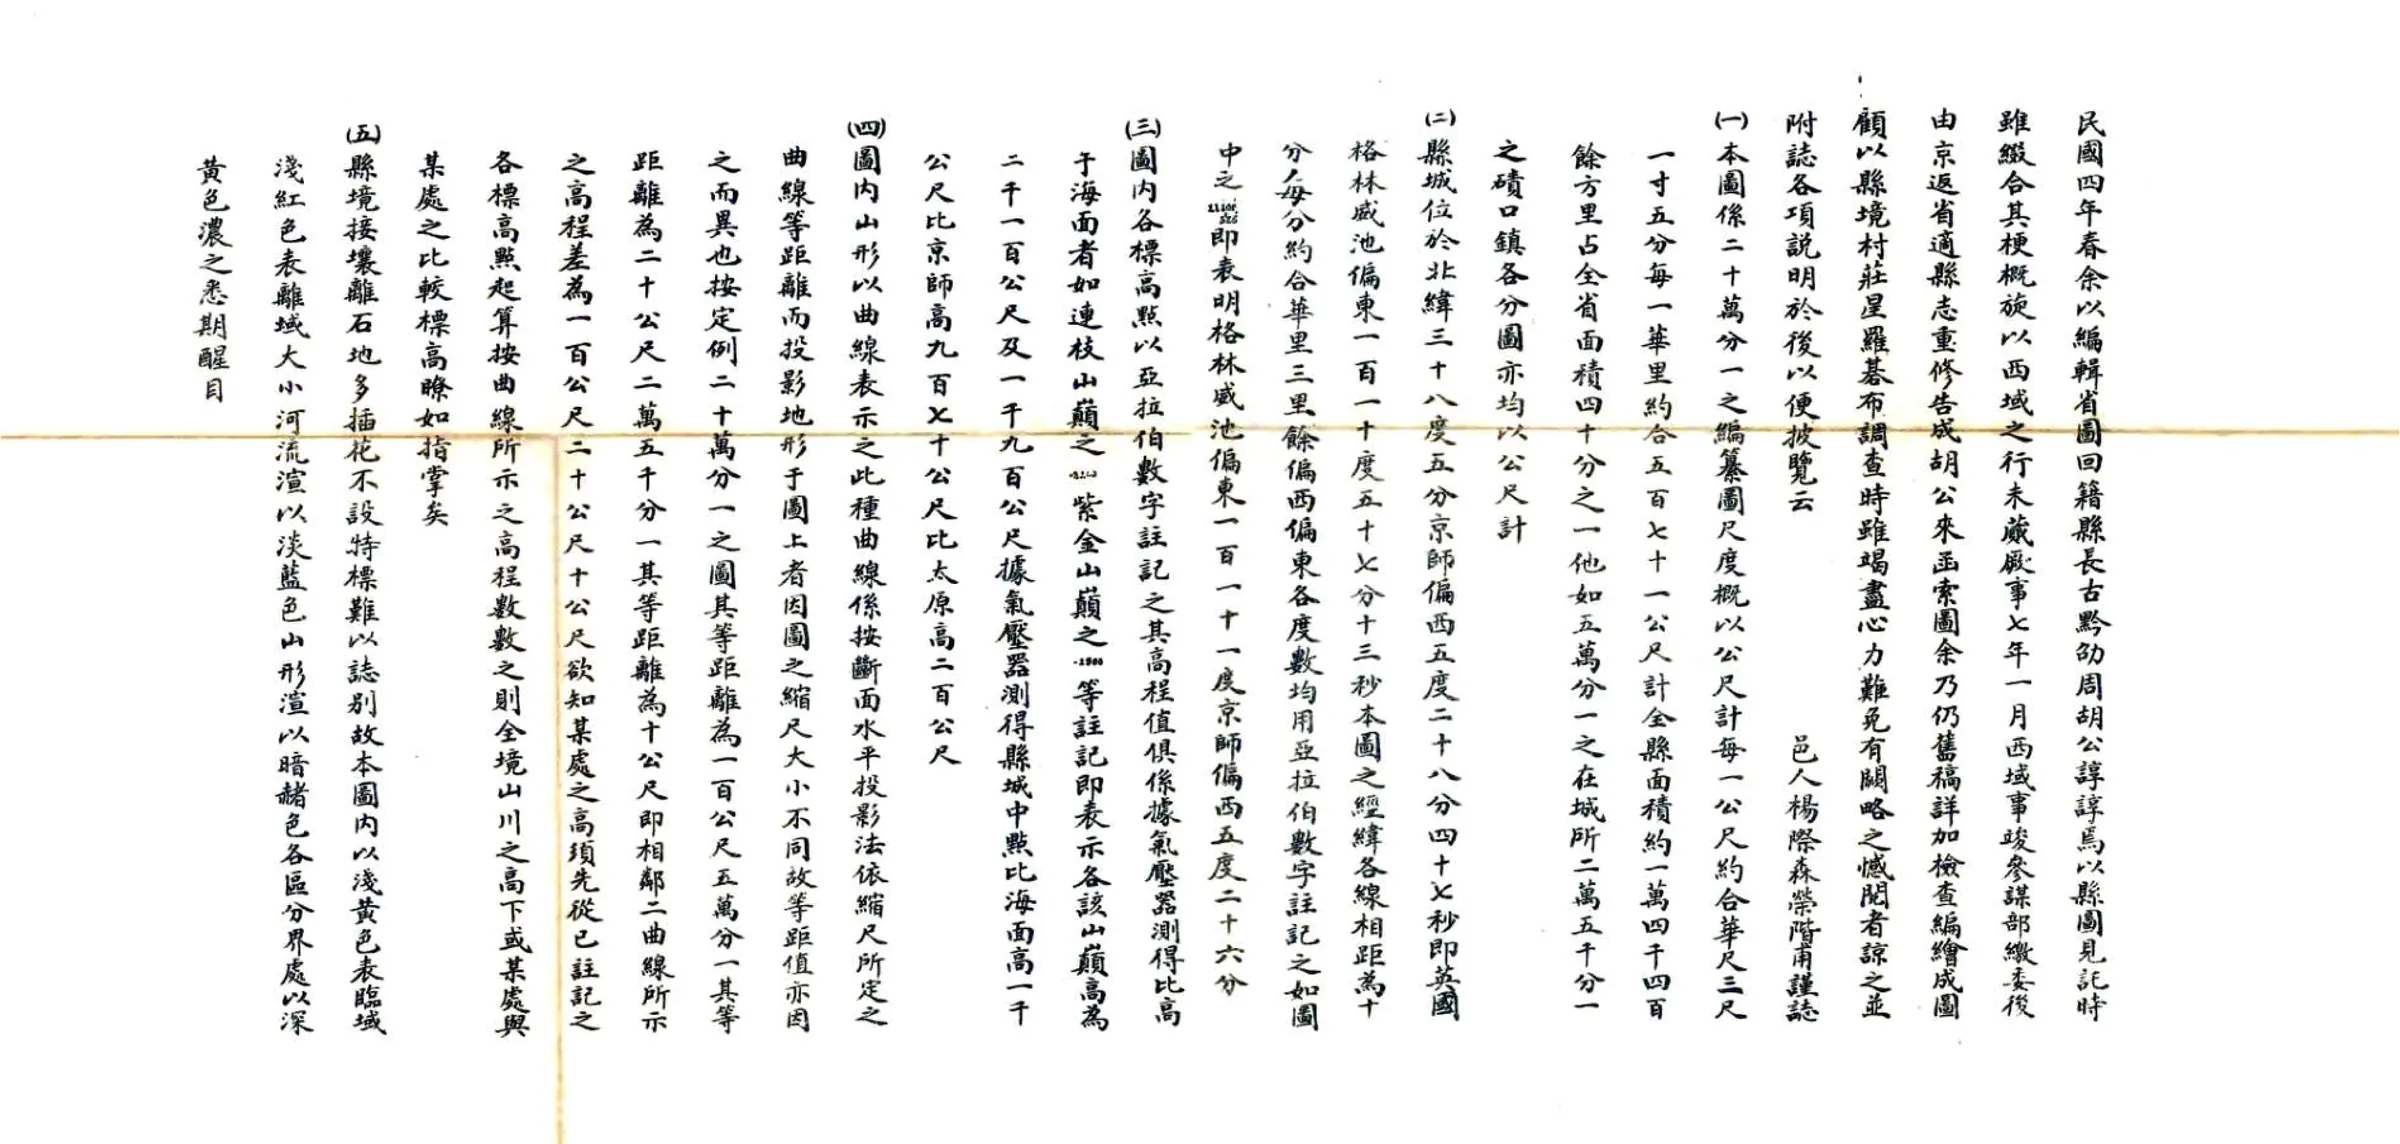 民國四年春余以編輯省圖回籍縣長古黔劭周胡公諄諄焉以縣圖見託時
雖綴合其梗概旋以西域之行未蕆厥事七年一月西域事竣參謀部繳委後
由京返省適縣志重修告成胡公來函索圖余乃仍舊稿詳加檢查編繪成圖
顧以縣境村莊星羅碁布調查時雖竭盡心力難免有闕略之憾閱者諒之並
附誌各項說明於後以便披覽云 邑人楊際森榮階甫謹誌
(一)本圖係二十萬分一之編纂圖尺度概以公尺計每一公尺約合華尺三尺
一寸五分每一華里約合五百七十一公尺計全縣面積約一萬四千四百
餘方里占全省面積四十分之一他如五萬分一之在城所二萬五千分一
之磧口鎮各分圖亦均以公尺計
(二)縣城位於北緯三十八度五分京師偏西五度二十八分四十七秒即英國
格林威池偏東一百一十度五十七分十三秒本圖之經緯各線相距為十
分每分約合華里三里餘偏西偏東各度數均用亞拉伯數字註記之如圖
中之即表明格林威池偏東一百一十一度京師偏西五度二十六分
(三)圖内各標高點以亞拉伯數字註記之其高程值俱係據氣壓器測得比高
于海面者如連枝山巔之紫金山巔之·1900等註記即表示各該山巔高為
二千一百公尺及一千九百公尺據氣壓器測得縣城中點比海面高一千
公尺比京師高九百七十公尺比太原高二百公尺
(四)圖内山形以曲線表示之此種曲線係按斷面水平投影法依縮尺所定之
曲線等距離而投影地形于圖上者因圖之縮尺大小不同故等距值亦因
之而異也按定例二十萬分一之圖其等距離為一百公尺五萬分一其等
距離為二十公尺二萬五千分一其等距離為十公尺即相鄰二曲線所示
之高程差為一百公尺二十公尺十公尺欲知某處之高須先從已註記之
各標高點起算按曲線所示之高程數數之則全境山川之高下或某處與
某處之比較標高瞭如指掌矣
(五)縣境接壤離石地多插花不設特標難以誌別故本圖内以淺黃色表臨域
淺紅色表離域大小河流渲以淡藍色山形渲以暗赭色各區分界處以深
黃色濃之悉期醒目